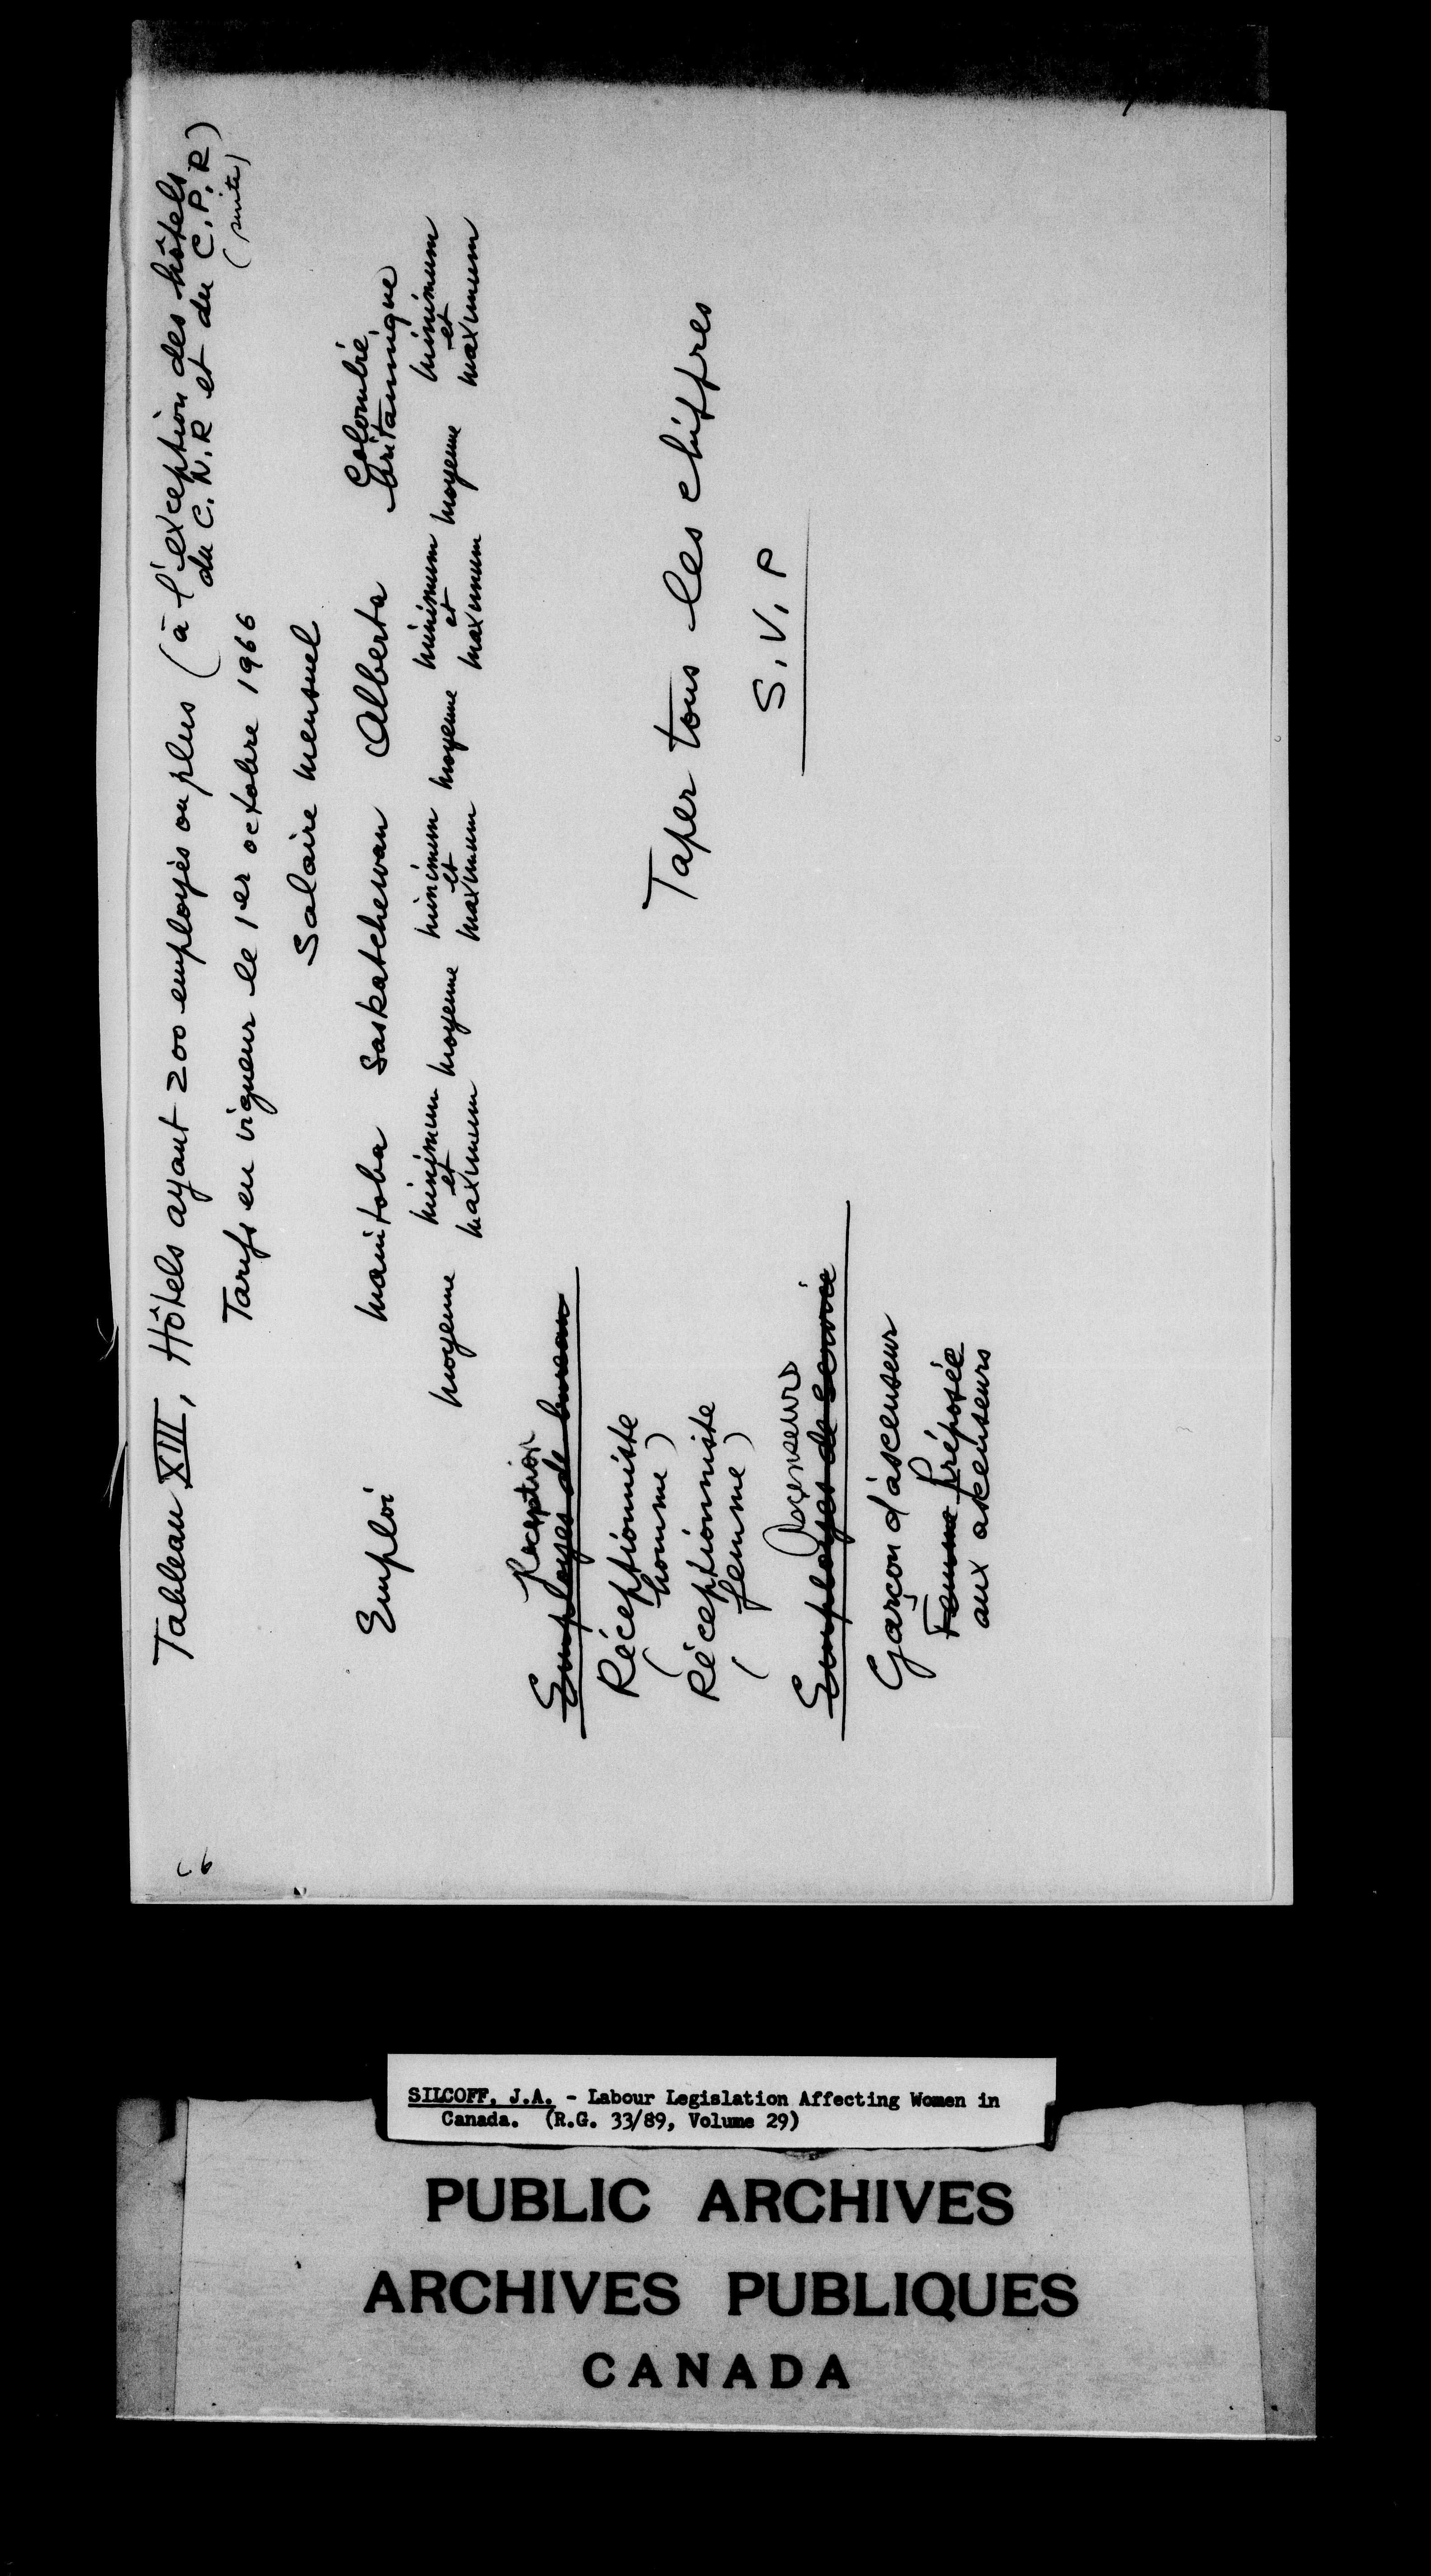 Tableau XIII, Hôtels ayant 200 employés ou plus (à l'exception des hôtels
du C.N.R et du C.P.R)
(suite)
Tarifs en vigueur le 1er octobre 1966
Salaire mensuel
Emploi Manitoba Saskatchewan Alberta Colombie
britannique
moyenne minimum et maximum moyenne minimum et maximum moyenne minimum et maximum moyenne minimum et maximum
Réception
Employés de bureau
Réceptionniste
(homme)
Réceptionniste
(femme)
Taper tous les chiffres
S.V.P
Ascenseurs
Employés de service
Garçon d'ascenseur
Femme Préposée
aux ascenseurs
SILCOFF, J.A. - Labour Legislation Affecting Women in
Canada. (R.G. 33/89, Volume 29)
PUBLIC ARCHIVES
ARCHIVES PUBLIQUES
CANADA